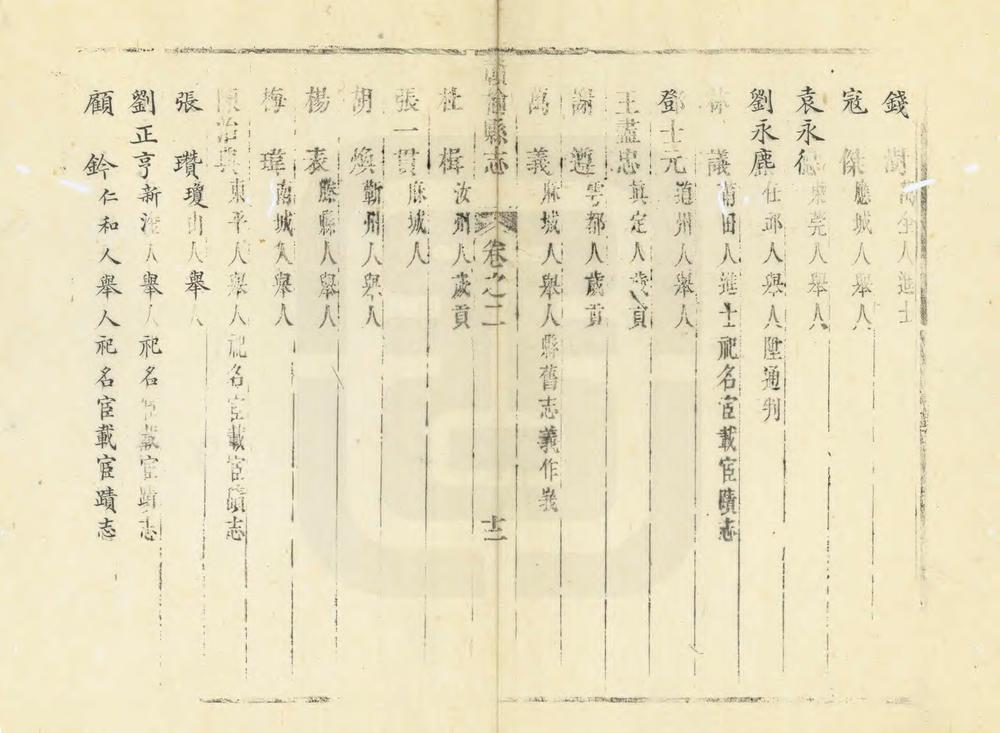 錢 澍 萬全人進士
寇 傑 應城人舉人
袁永 東莞人舉人
劉永鹿 任邱人舉人陞通判
林 議 莆田人進士祀名宦載宦蹟志
鄧士元 道州人舉人
王藎忠 真定人歲貢
謝 遵 雩都人歲貢
萬 義 麻城人舉人縣舊志義作嶷
贛榆縣志 卷之二 十二
杜 楫 汝州人歲貢
張一貫 麻城人
胡 煥 蘄州人舉人
楊 表 滕縣人舉人
梅 瑋 南城人舉人
陳治典 東平人舉人祀名宦載宦蹟志
張 瓚 瓊山人舉人
劉正亨 新淦人舉人祀名宦載宦蹟志
顧 鈐 仁和人舉人祀名宦載宦蹟志